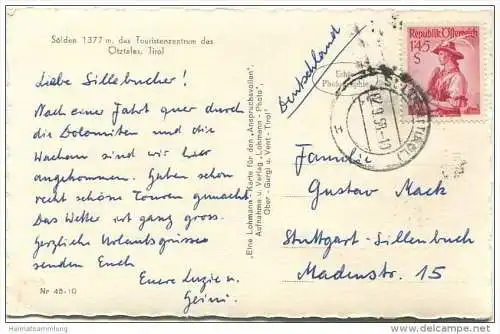 Sölden 1377 m, das Touristenzentrum des
Ötztales, Tirol
Liebe Sillebucher!
Nach einer Fahrt quer durch
die Dolomiten und die
Wachau sind wir hier
angekommen. Haben schon
recht schöne Touren gemacht
Das Wetter ist ganz gross.
Herzliche Urlaubsgrüsse
senden Euch
Eure Luzie u.
Nr 48-10
"Eine Lohmann-Karte für den Anspruchsvollen"
Aufnahme u. Verlag "Lohmann-Photo",
Ober-Gurgl u. Vent-Tirol
Deutschland
Echte
Photographie
Republik Österreich
1.45
S
Familie
Gustav Mack
Stuttgart-Sillenbuch
Madenstr. 15
Hamatssammlung